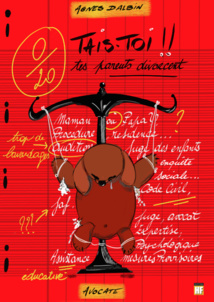 AGNES DALBIN
0/20
TAÏS-TOI !!
tes parents divorcent
Maman ou Papa ?
trop de bavardages
Procédure résidence...?
Audition Juge des enfants
enquête
sociale...
Code Civil,
jaf
???
juge, avocat
Expertise,
Psychologique
Assistance mesures Provisoires
éducative
AVOCATE
HF